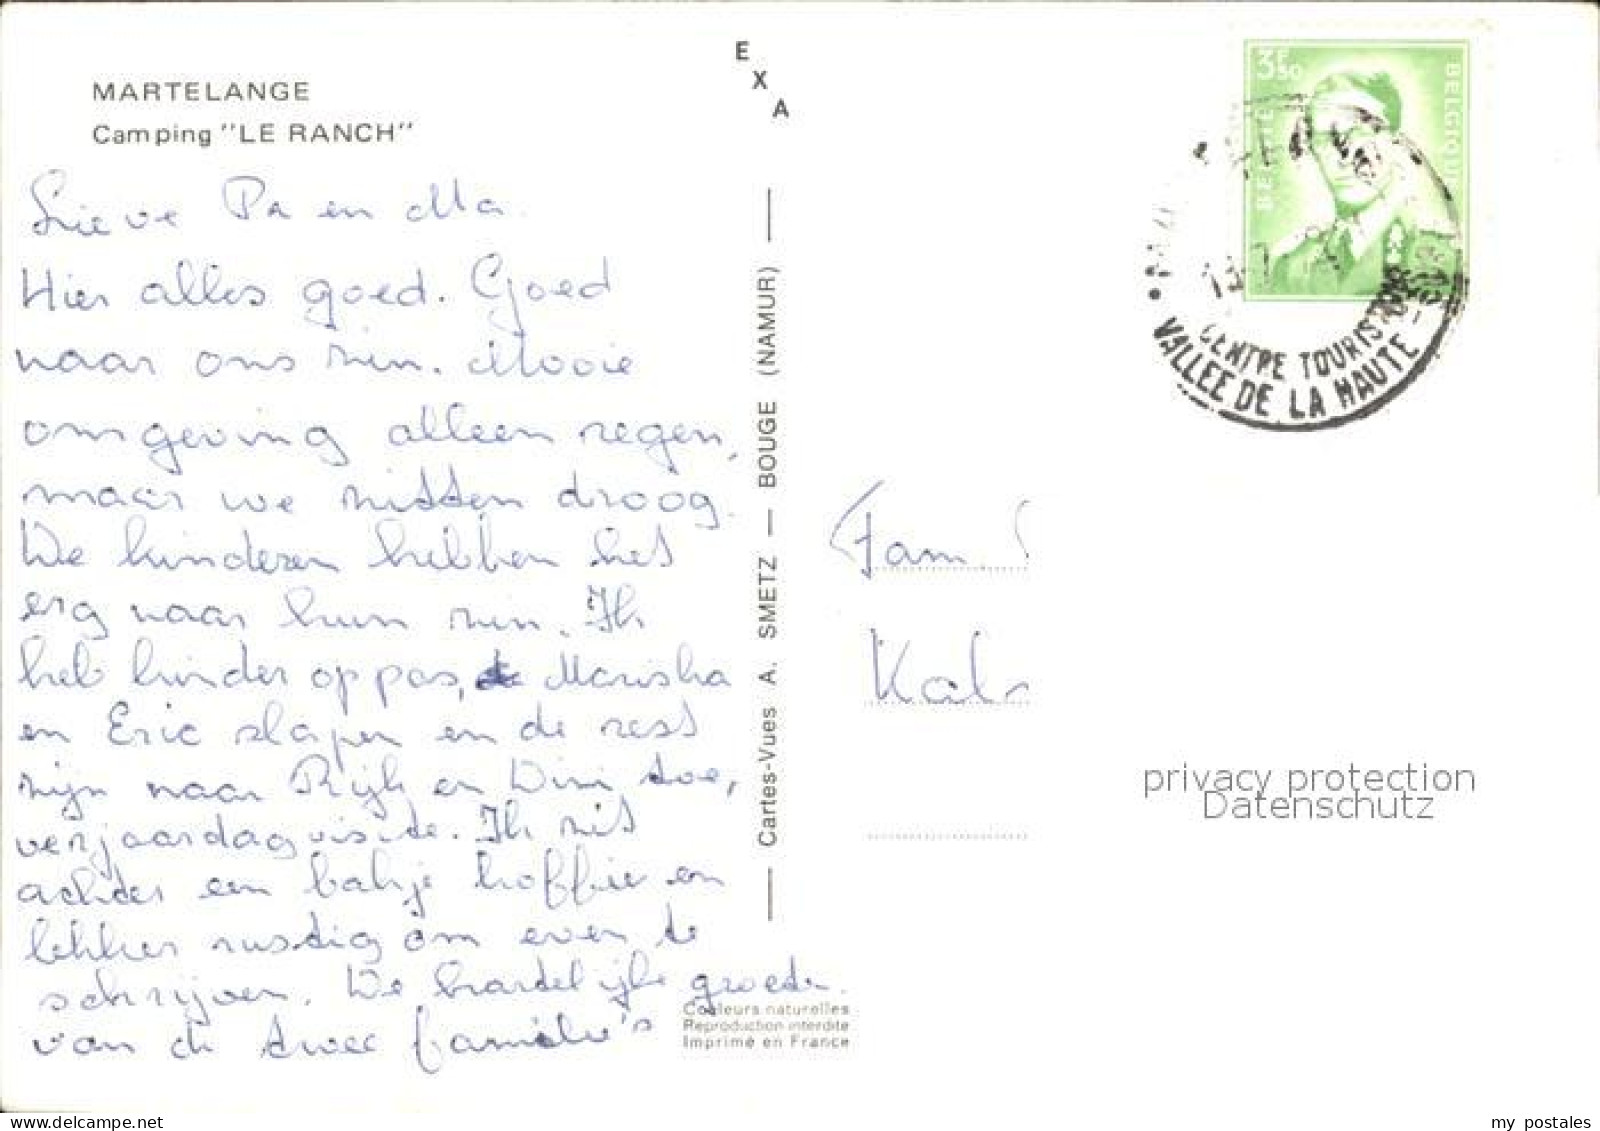 MARTELANGE
Camping "LE RANCH"
Lieve Pa en Ma.
Hier alles goed. Goed
naar ons zin. Mooie
omgeving alleen regen,
maar we zitten droog.
De kinderen hebben het
erg naar hun zin. Ik
heb kinder oppas, Mariska
en Eric slapen en de rest
zijn naar Rijk en Wim toe,
verjaardag visite. Ik zit
achter een bakje koffie en
lekker rustig om even te
schrijven. De hartelijke groeten.
van de twee familie's
E
X
A
Cartes-Vues A. SMETZ — BOUGE (NAMUR)
Couleurs naturelles
Reproduction interdite
Imprimé en France
3F50
BELGIE
BELGIQUE
CENTRE TOURIST
VALLEE DE LA HAUTE-
Fam.
Kals
privacy protection
Datenschutz
delcampe.net
my_postales